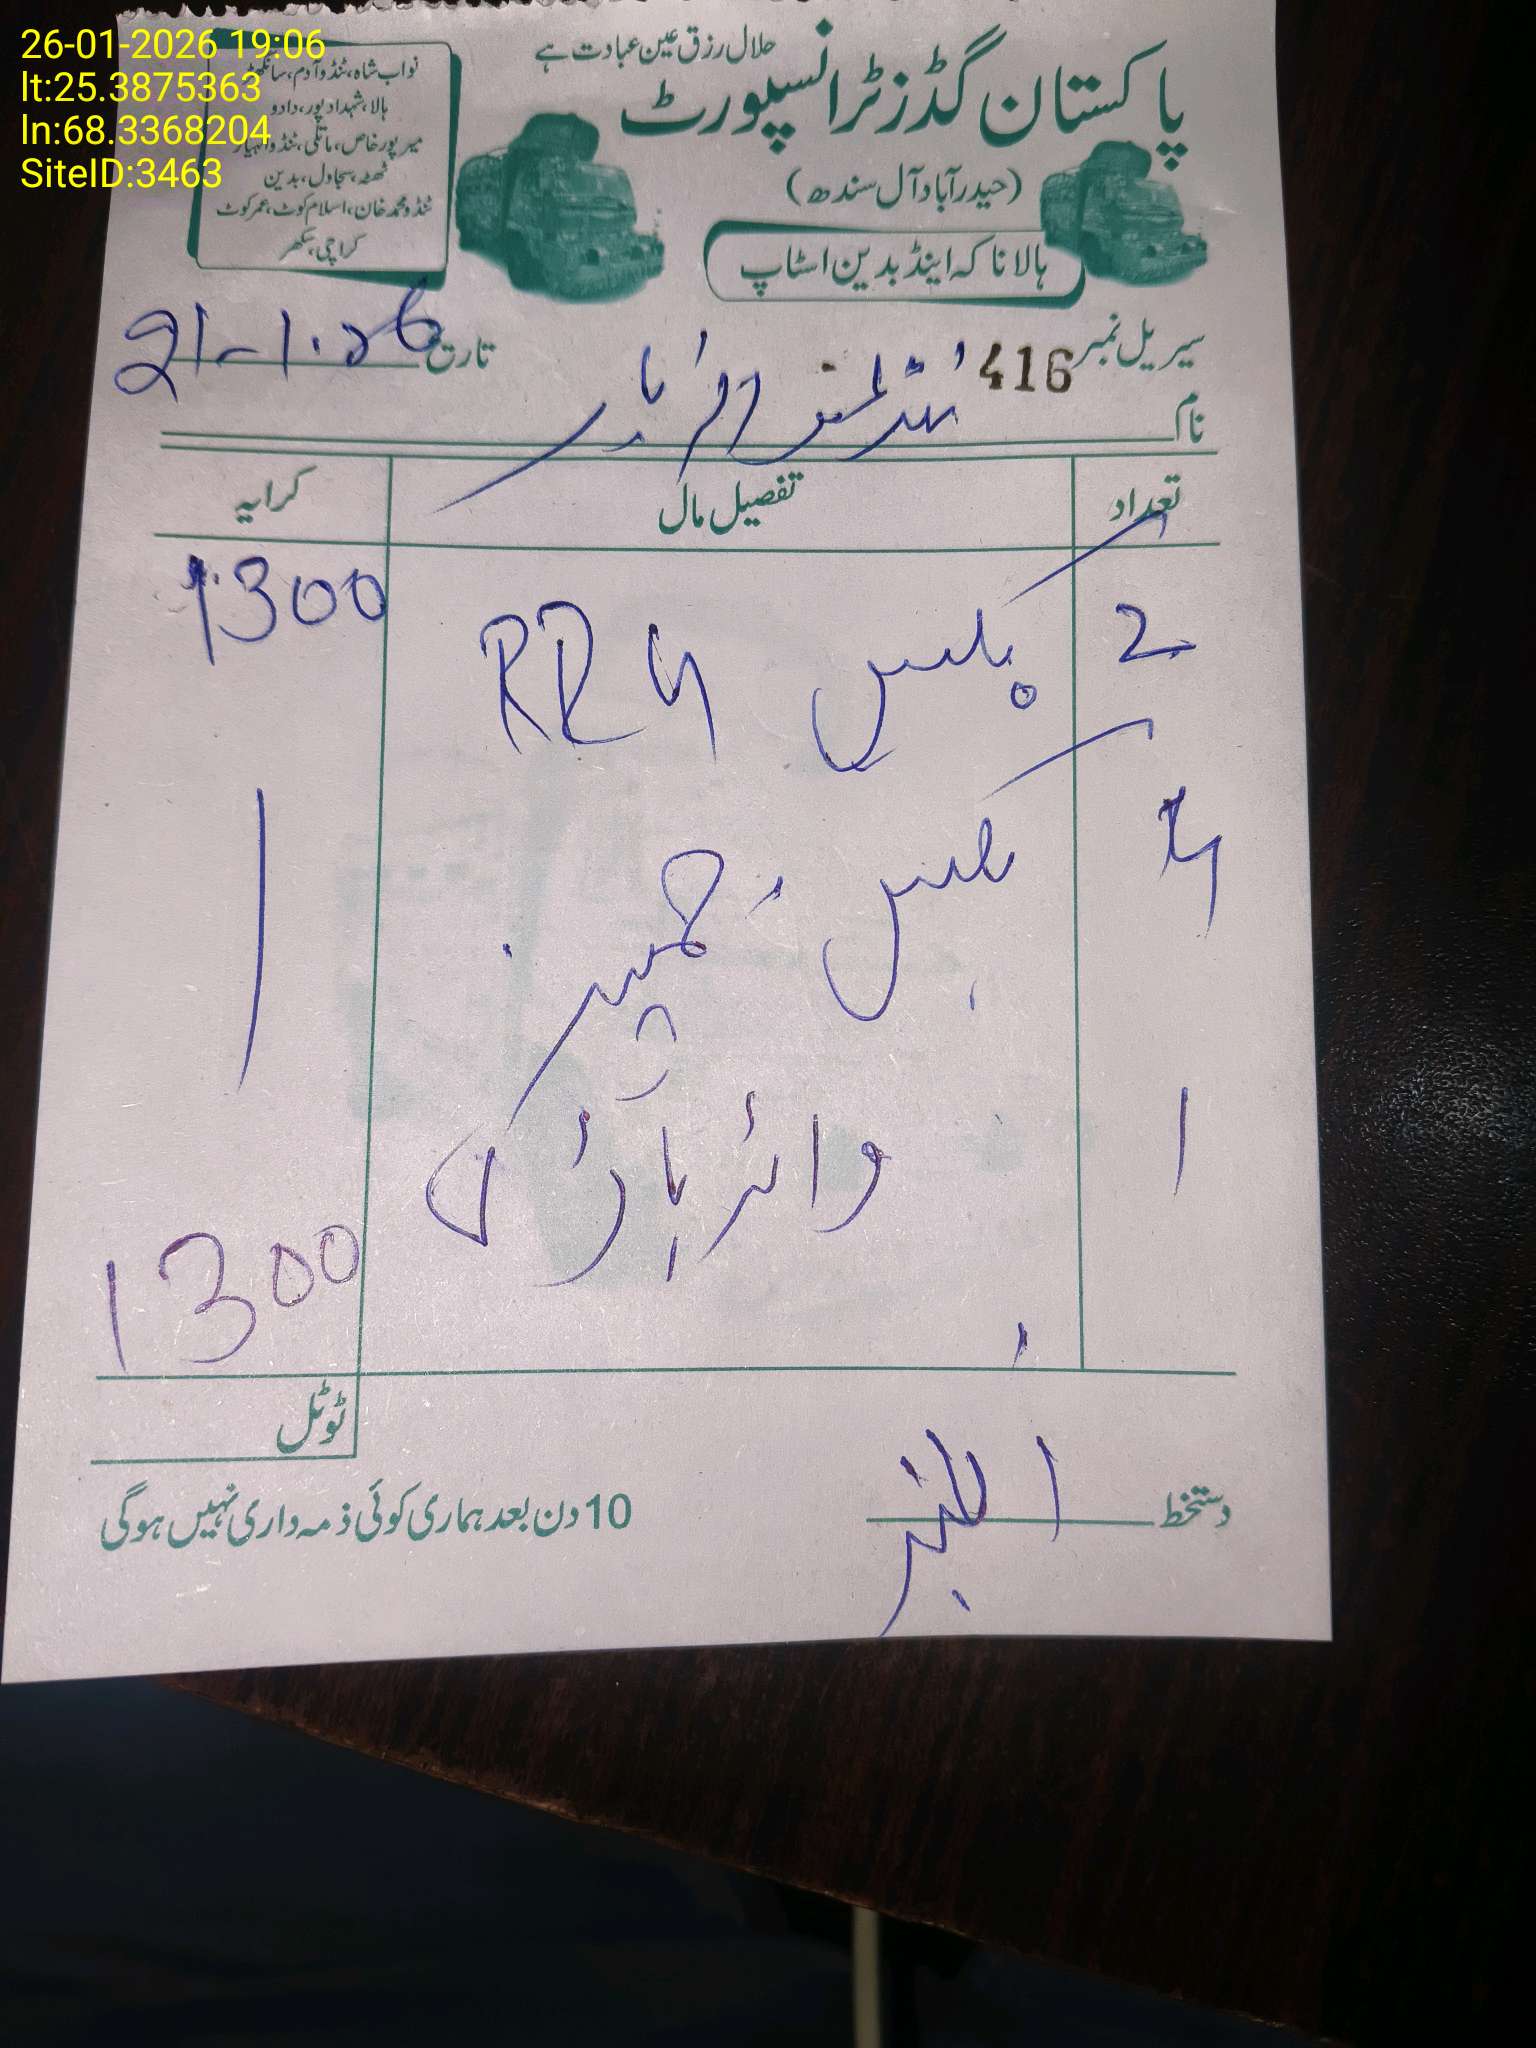 26-01-2026 19:06
lt:25.3875363
ln:68.3368204
SiteID:3463
حلال رزق عین عبادت ہے
پاکستان گڈز ٹرانسپورٹ
(حیدرآباد آل سندھ)
ہالا ناکہ اینڈ بدین اسٹاپ
نواب شاہ، ٹنڈوآدم، سانگھڑ
ہالا، شہدادپور، دادو
میرپورخاص، ماتلی، ٹنڈوالہیار
ٹھٹہ، سجاول، بدین
ٹنڈومحمدخان، اسلام کوٹ، عمرکوٹ
کراچی، سکھر
سیریل نمبر 416
تاریخ 21-1.26
نام
تعداد تفصیل مال کرایہ
2 بکس RR4 1300
4 بکس
1 وائر
1300
ٹوٹل
دستخط
10 دن بعد ہماری کوئی ذمہ داری نہیں ہوگی